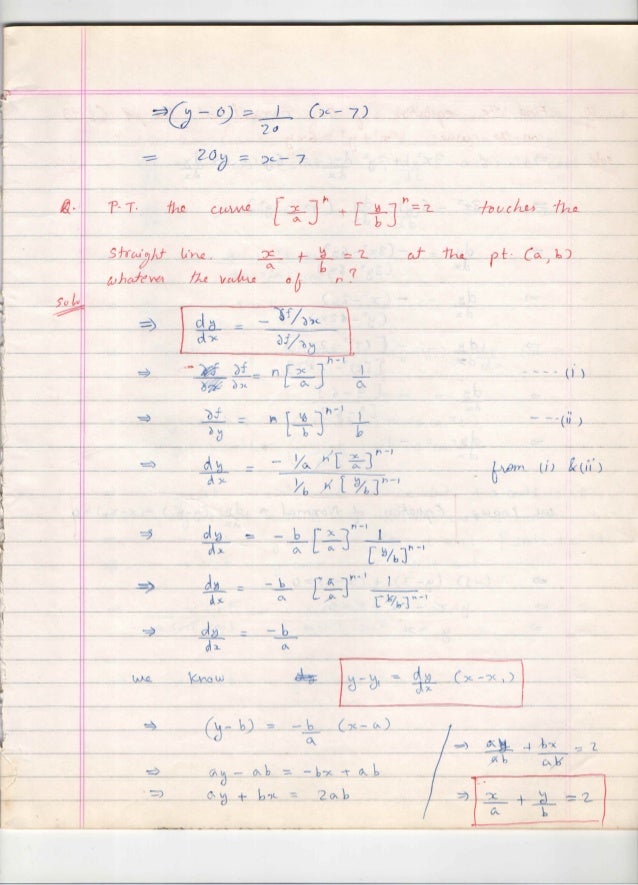 ⇒ (y – 0) = 1/20 (x – 7)
= 20y = x – 7
Q. P.T. the curve [x/a]^n + [y/b]^n = 2 touches the
straight line. x/a + y/b = 2 at the pt. (a, b)
whatever the value of n?
Soln
⇒ dy/dx = – ∂f/∂x / ∂f/∂y
⇒ ∂f/∂x = n [x/a]^n-1 1/a ---- (i)
⇒ ∂f/∂y = n [y/b]^n-1 1/b --- (ii)
⇒ dy/dx = – 1/a n [x/a]^n-1 / 1/b n [y/b]^n-1 from (i) & (ii)
⇒ dy/dx = – b/a [x/a]^n-1 1/[y/b]^n-1
⇒ dy/dx = – b/a [a/a]^n-1 1/[b/b]^n-1
⇒ dy/dx = – b/a
we know y – y₁ = dy/dx (x – x₁)
⇒ (y – b) = – b/a (x – a)
⇒ ay – ab = – bx + ab
⇒ ay + bx = 2ab
⇒ ay/ab + bx/ab = 2
⇒ x/a + y/b = 2